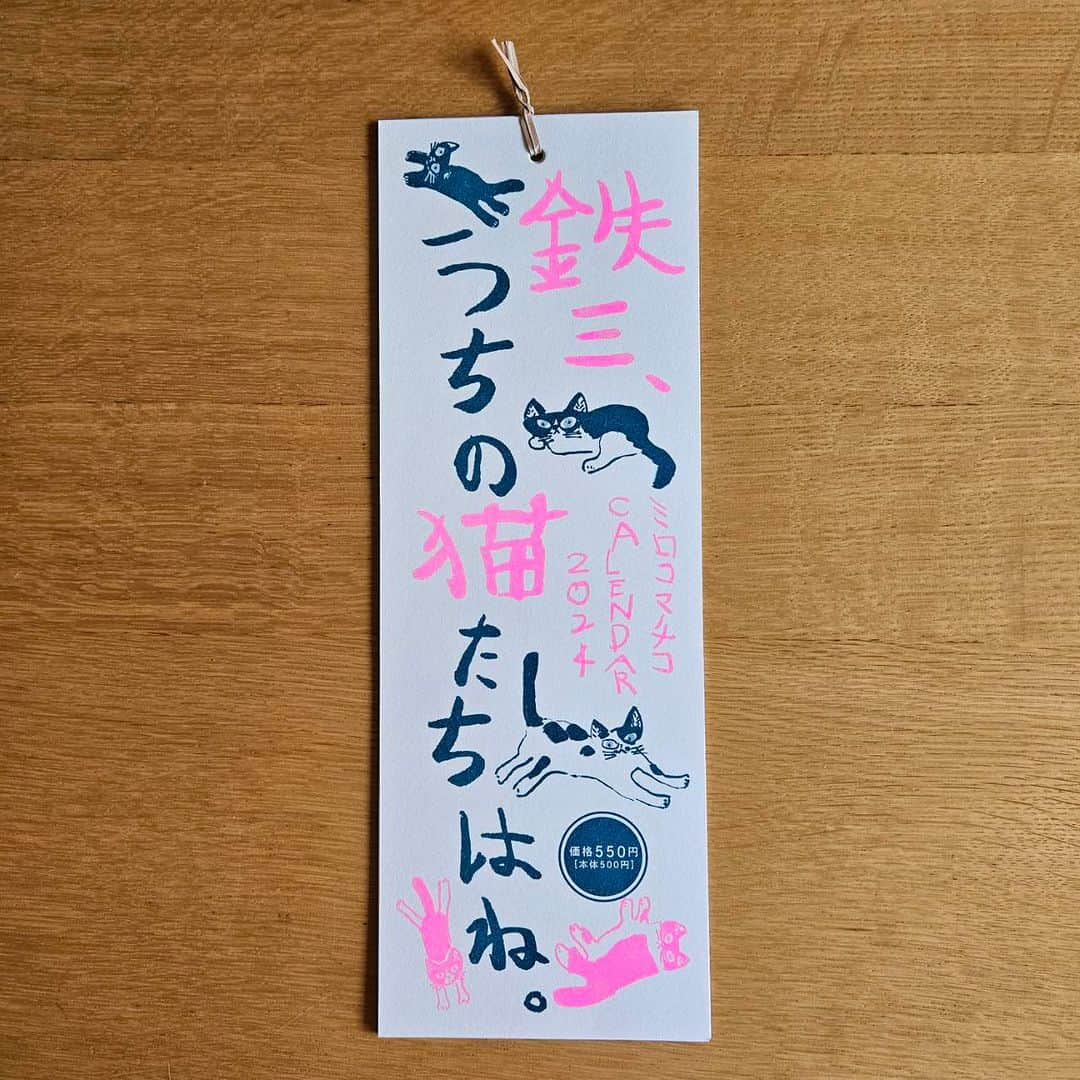 鉄三、
うちの猫たちはね。
ミロコマチコ
CALENDAR
2024
価格550円
[本体500円]